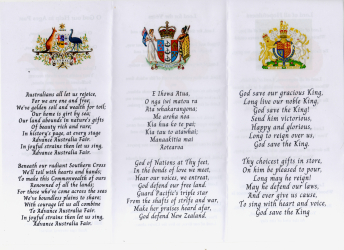 Australians all let us rejoice,
For we are one and free;
We've golden soil and wealth for toil;
Our home is girt by sea;
Our land abounds in nature's gifts
Of beauty rich and rare;
In history's page, at every stage
Advance Australia Fair.
In joyful strains then let us sing,
Advance Australia Fair.

Beneath our radiant Southern Cross
We'll toil with hearts and hands;
To make this Commonwealth of ours
Renowned of all the lands;
For those who've come across the seas
We've boundless plains to share;
With courage let us all combine
To Advance Australia Fair.
In joyful strains then let us sing,
Advance Australia Fair.

E Ihowa Atua,
O nga iwi matou ra
Ata whakarangona;
Me aroha noa
Kia hua ko te pai;
Kia tau to atawhai;
Manaakitia mai
Aotearoa

God of Nations at Thy feet,
In the bonds of love we meet,
Hear our voices, we entreat,
God defend our free land.
Guard Pacific's triple star
From the shafts of strife and war,
Make her praises heard afar,
God defend New Zealand.

God save our gracious King,
Long live our noble King,
God save the King!
Send him victorious,
Happy and glorious,
Long to reign over us,
God save the King.

Thy choicest gifts in store,
On him be pleased to pour,
Long may he reign!
May he defend our laws,
And ever give us cause,
To sing with heart and voice,
God save the King